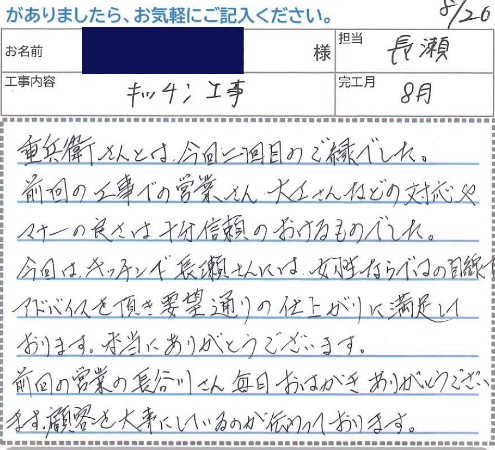 がありましたら、お気軽にご記入ください。
8/26
お名前
様
担当
長瀬
工事内容
キッチン工事
完工月
8月
重兵衛さんとは、今回二回目のご縁でした。
前回の工事での営業さん 大工さんなどの対応や
マナーの良さは十分信頼のおけるものでした。
今回は、キッチンで長瀬さんには、女性ならではの目線で
アドバイスを頂き要望通りの仕上がりに満足して
おります。本当にありがとうございます。
前回の営業の長谷川さん毎日おはがきありがとうござい
ます。顧客を大事にしているのが伝わっております。